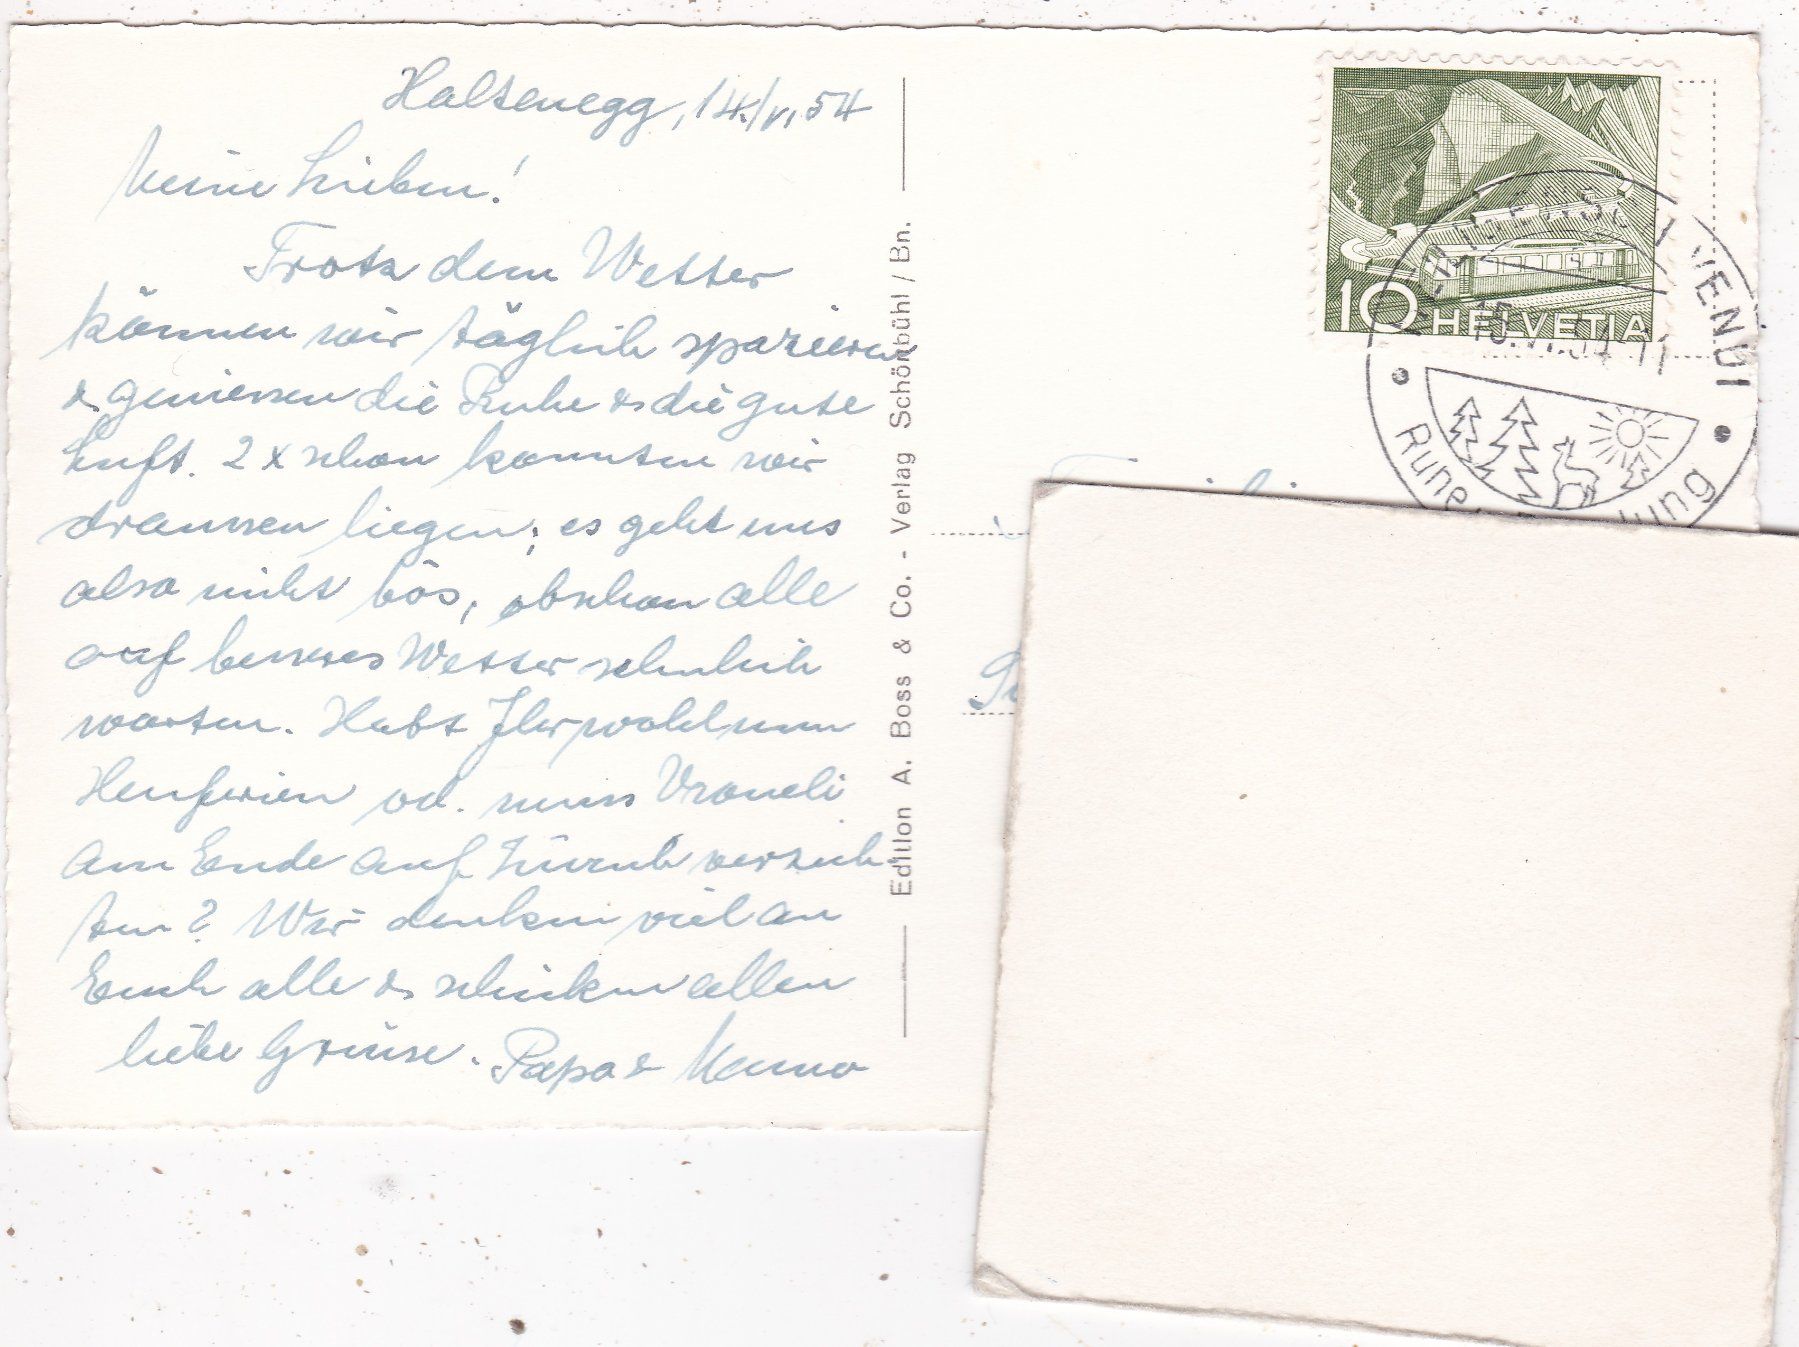 Haltenegg, 14./VI. 54
Meine Lieben!
Trotz dem Wetter
können wir täglich spazieren
& geniessen die Ruhe & die gute
Luft. 2 x schon konnten wir
draussen liegen; es geht uns
also nicht bös, obschon alle
auf besseres Wetter sehnlich
warten. Habt Ihr wohl nun
Heuferien od. muss Vroneli
am Ende auf Zürich verzich-
ten? Wir denken viel an
Euch alle & schicken allen
liebe Grüsse. Papa & Mama
Edition A. Boss & Co. - Verlag Schönbühl / Bn.
10 HELVETIA
15.VI.54 11